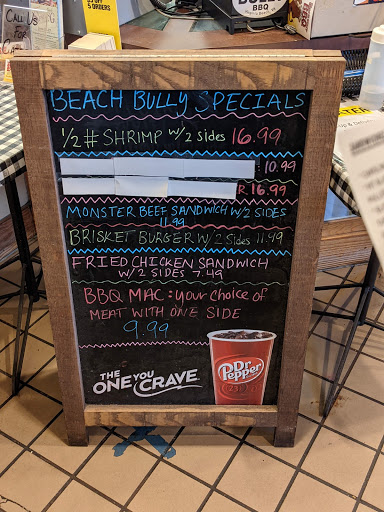 CALL US
FOR
5 OFF
5 ORDERS
BULLY
BBQ
BEACH BULLY SPECIALS
1/2 # SHRIMP W/2 sides 16.99
10.99
R 16.99
MONSTER BEEF SANDWICH W/2 SIDES
11.99
BRISKET BURGER W/2 Sides 11.49
FRIED CHICKEN SANDWICH
W/2 SIDES 7.49
BBQ MAC: your choice of
MEAT WITH ONE SIDE
9.99
THE
ONE YOU
CRAVE
Dr Pepper